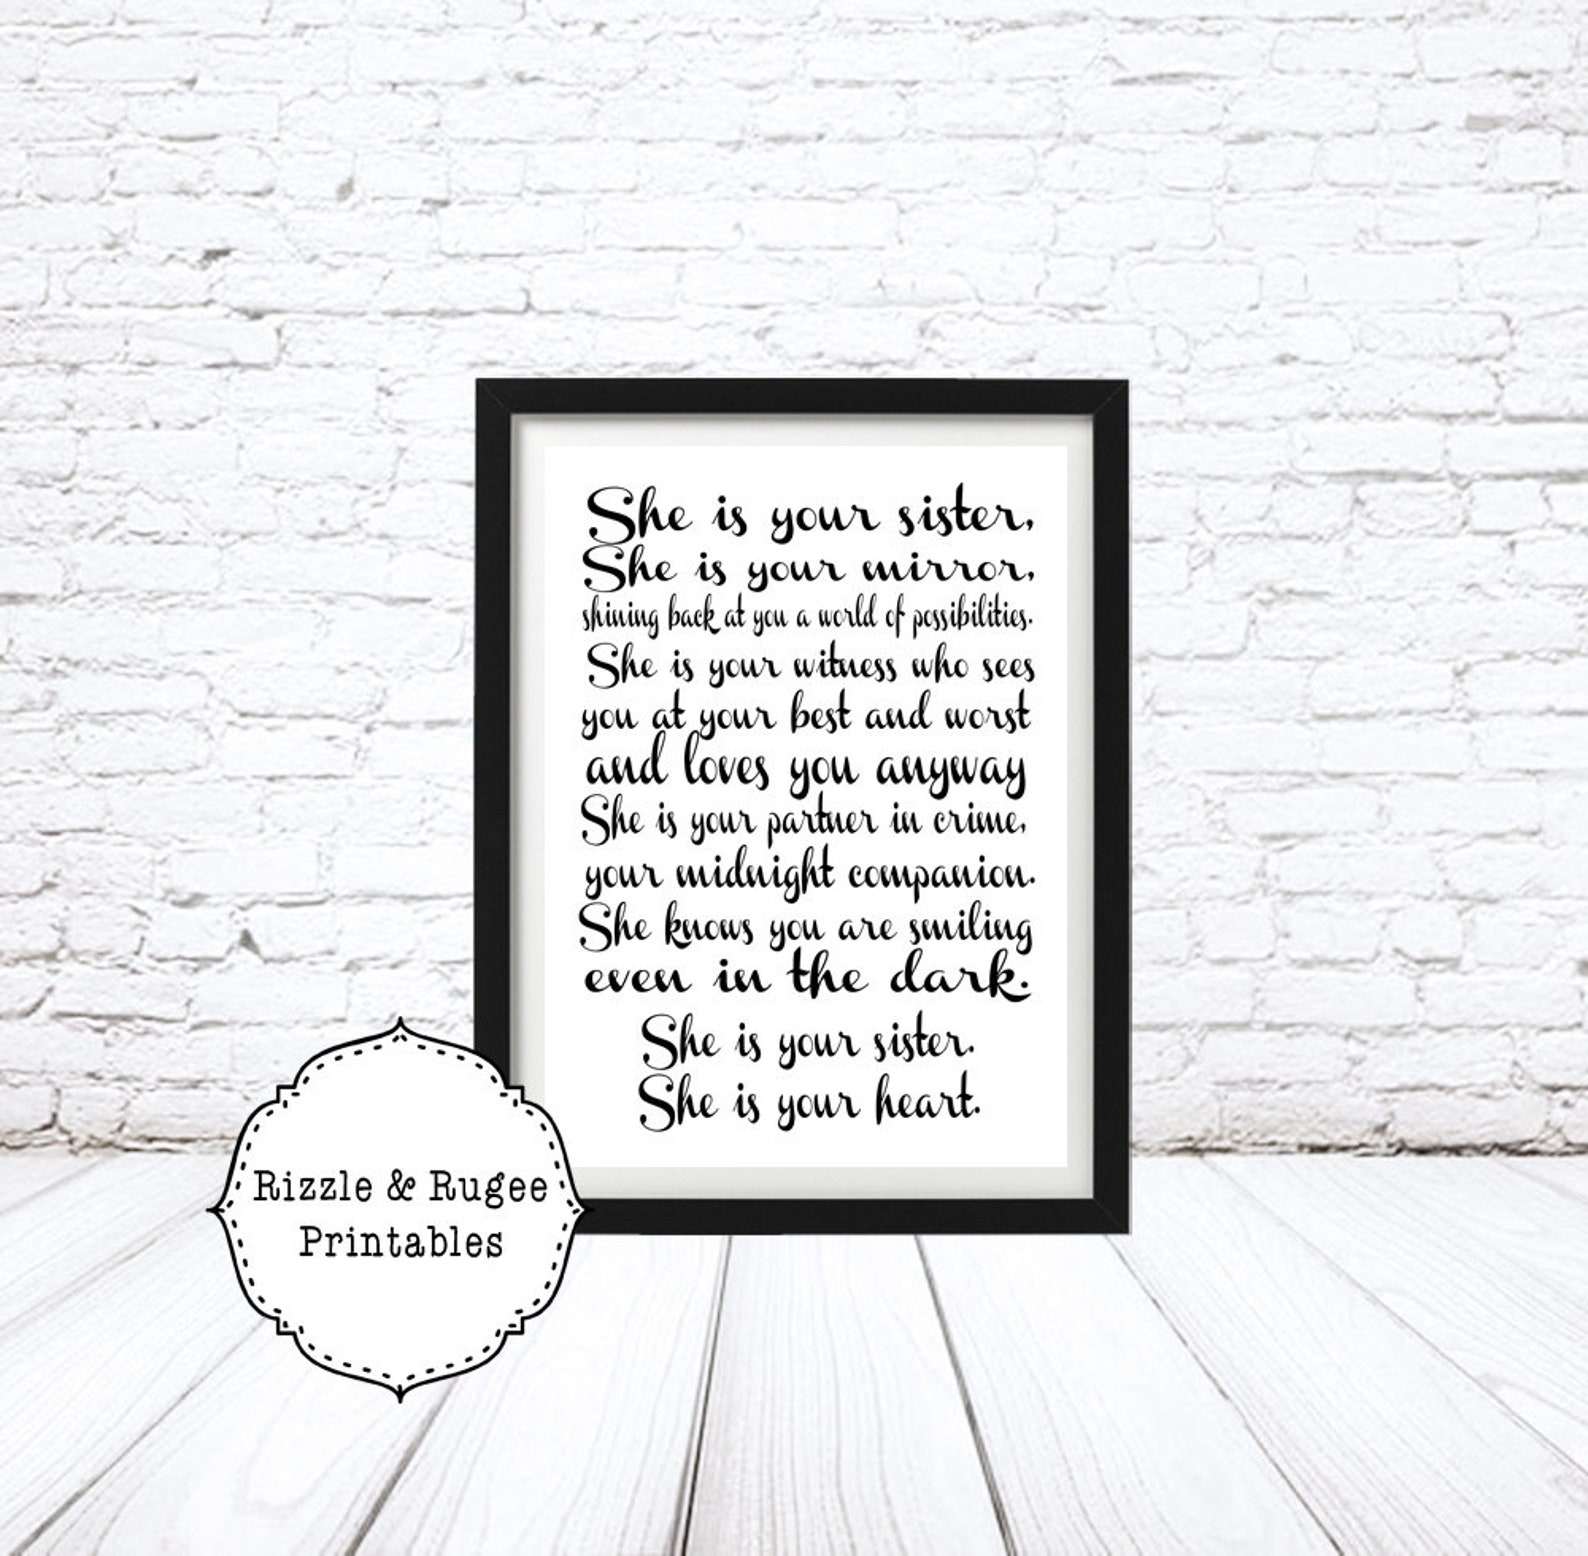 She is your sister,
She is your mirror,
shining back at you a world of possibilities.
She is your witness who sees
you at your best and worst
and loves you anyway
She is your partner in crime,
your midnight companion.
She knows you are smiling
even in the dark.
She is your sister.
She is your heart.
Rizzle & Rugee
Printables